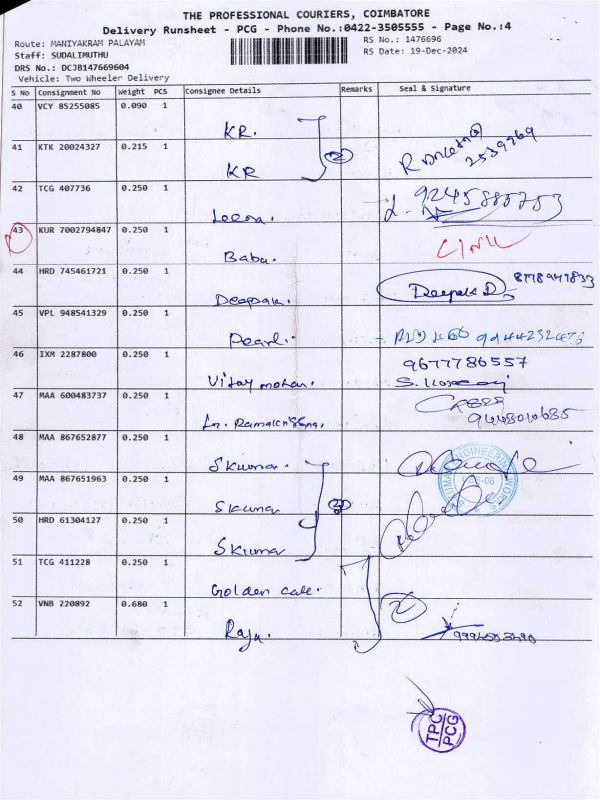 THE PROFESSIONAL COURIERS, COIMBATORE
Delivery Runsheet - PCG - Phone No.:0422-3505555 - Page No.:4
Route: MANIYAKRAM PALAYAM
RS No.: 1476696
Staff: SUDALIMUTHU
RS Date: 19-Dec-2024
DRS No.: DCJB147669604
Vehicle: Two Wheeler Delivery
S No Consignment No Weight PCS Consignee Details Remarks Seal & Signature
40 VCY 85255085 0.090 1
KR.
41 KTK 20024327 0.215 1
KR
2539769
42 TCG 407736 0.250 1
Leena.
43 KUR 7002794847 0.250 1
Babu.
44 HRD 745461721 0.250 1
Deepak.
Deepak D
45 VPL 948541329 0.250 1
Pearl.
46 IXM 2287800 0.250 1
Vijay mohan.
9677786557
47 MAA 600483737 0.250 1
48 MAA 867652877 0.250 1
S Kumar.
49 MAA 867651963 0.250 1
S Kumar
50 HRD 61304127 0.250 1
S Kumar
51 TCG 411228 0.250 1
Golden cafe.
52 VNB 220892 0.680 1
Raju.
TPC
PCG